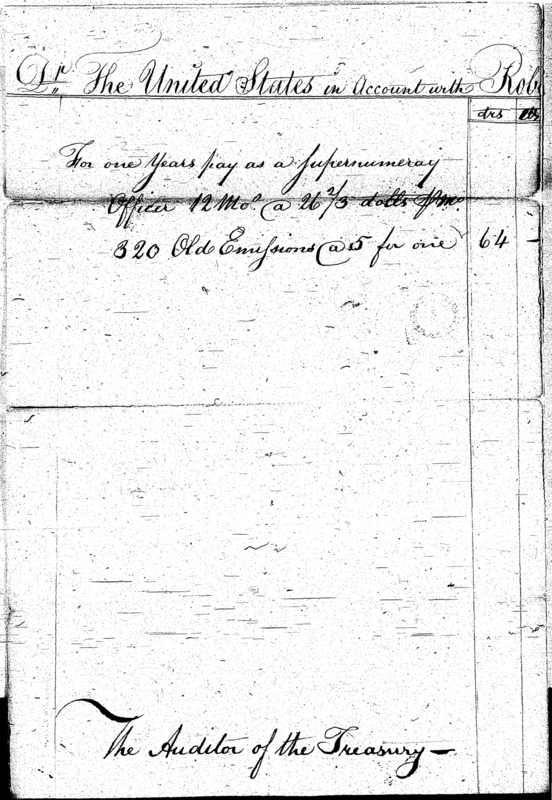 Dr The United States in Account with Rob
drs cts
For one Years pay as a Supernumeray
Officer 12 Mos @ 26 2/3 dolls
320 Old Emissions @ 5 for one 64 —
The Auditor of the Treasury —